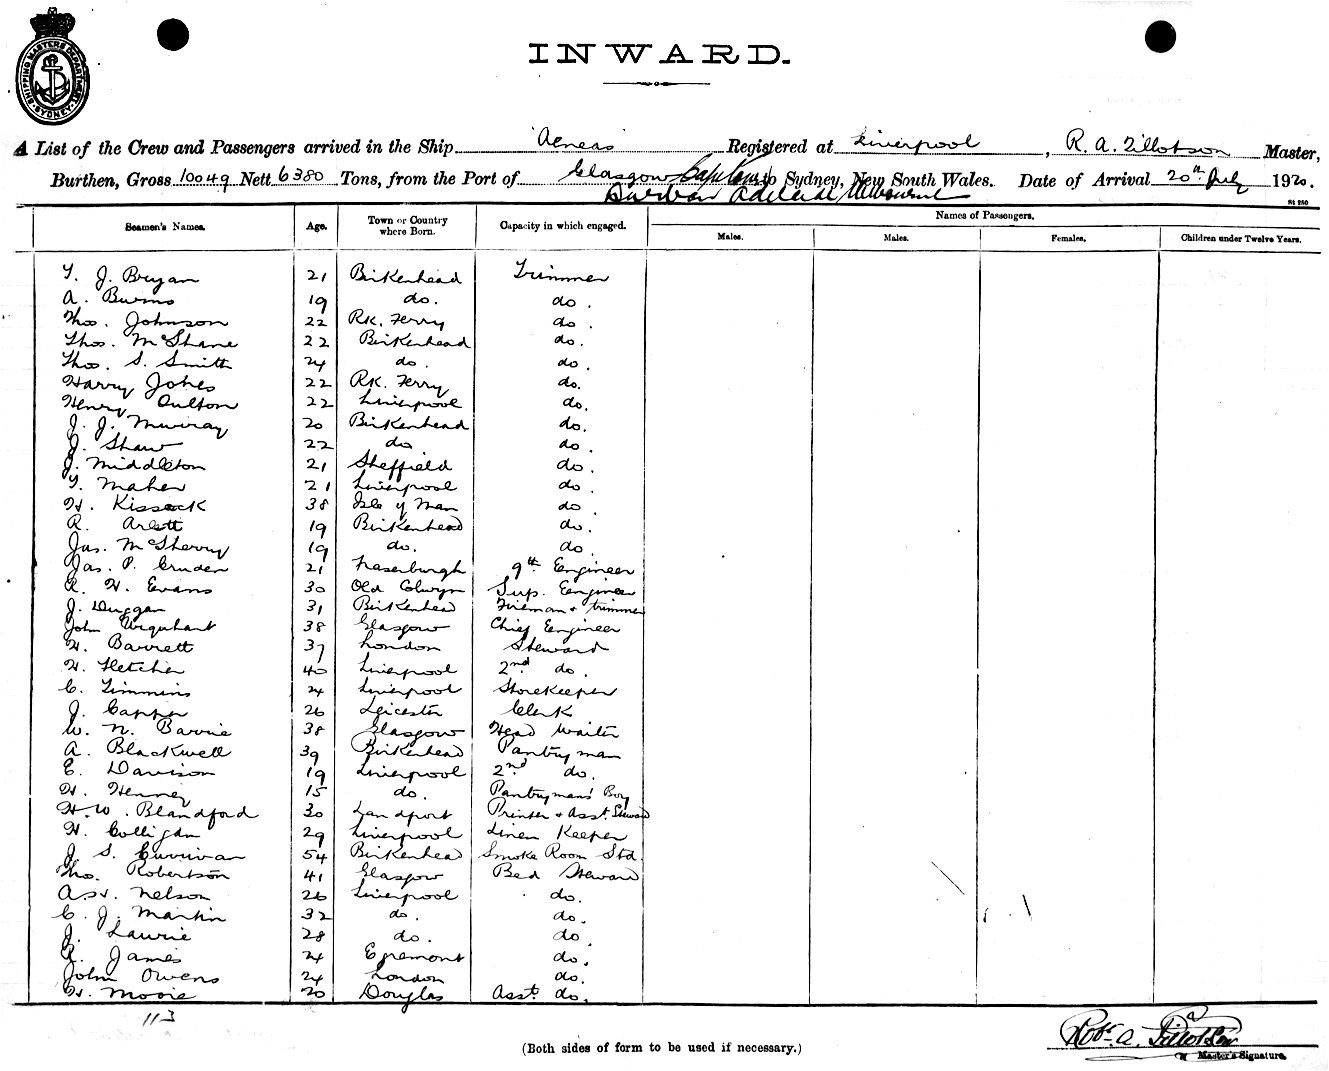 SHIPPING MASTERS DEPARTMENT SYDNEY
INWARD.
A List of the Crew and Passengers arrived in the Ship "Aeneas" Registered at Liverpool, R. A. Tillotson Master,
Burthen, Gross 10049 Nett 6380 Tons, from the Port of Glasgow to Sydney, New South Wales. Date of Arrival 20th July 1920.
Durban Adelaide Melbourne
St 280
Seamen's Names. Age. Town or Country where Born. Capacity in which engaged. Names of Passengers.
Males. Males. Females. Children under Twelve Years.
T. J. Bryan 21 Birkenhead Trimmer
A. Burns 19 do. do.
Thos. Johnson 22 Rk. Ferry do.
Thos. McShane 22 Birkenhead do.
Thos. S. Smith 24 do. do.
Harry Jones 22 Rk. Ferry do.
Henry Oulton 22 Liverpool do.
J. J. Murray 20 Birkenhead do.
J. Shaw 22 do do.
J. Middleton 21 Sheffield do.
T. Maher 21 Liverpool do.
H. Kissack 38 Isle of Man do.
R. Arlett 19 Birkenhead do.
Jas. McSherry 19 do. do.
Jas. P. Cruden 21 Fraserburgh 9th Engineer
R. H. Evans 30 Old Colwyn Sup. Engineer
J. Duggan 31 Birkenhead Fireman & trimmer
John Urquhart 38 Glasgow Chief Engineer
H. Barrett 37 London Steward
H. Fletcher 40 Liverpool 2nd do.
C. Timmins 24 Liverpool Storekeeper
J. Capper 26 Leicester Clerk
W. N. Barrie 38 Glasgow Head Waiter
A. Blackwell 39 Birkenhead Pantryman
E. Davison 19 Liverpool 2nd do.
H. Henney 15 do. Pantryman's Boy
H. W. Blandford 30 Landport Printer & Asst. Steward
H. Colligan 29 Liverpool Linen Keeper
J. S. Currivan 54 Birkenhead Smoke Room Std.
Thos. Robertson 41 Glasgow Bed Steward
Nelson 26 Liverpool do.
C. J. Martin 32 do. do.
J. Laurie 28 do. do.
R. James 24 Egremont do.
John Owens 24 London do.
H. Moore 20 Douglas Asst. do.
113
Robt. A. Tillotson
Master's Signature.
(Both sides of form to be used if necessary.)